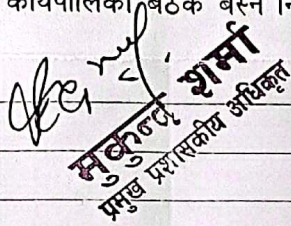 कार्यपालिका बैठक बस्न
मुकुन्द शर्मा
प्रमुख प्रशासकीय अधिकृत